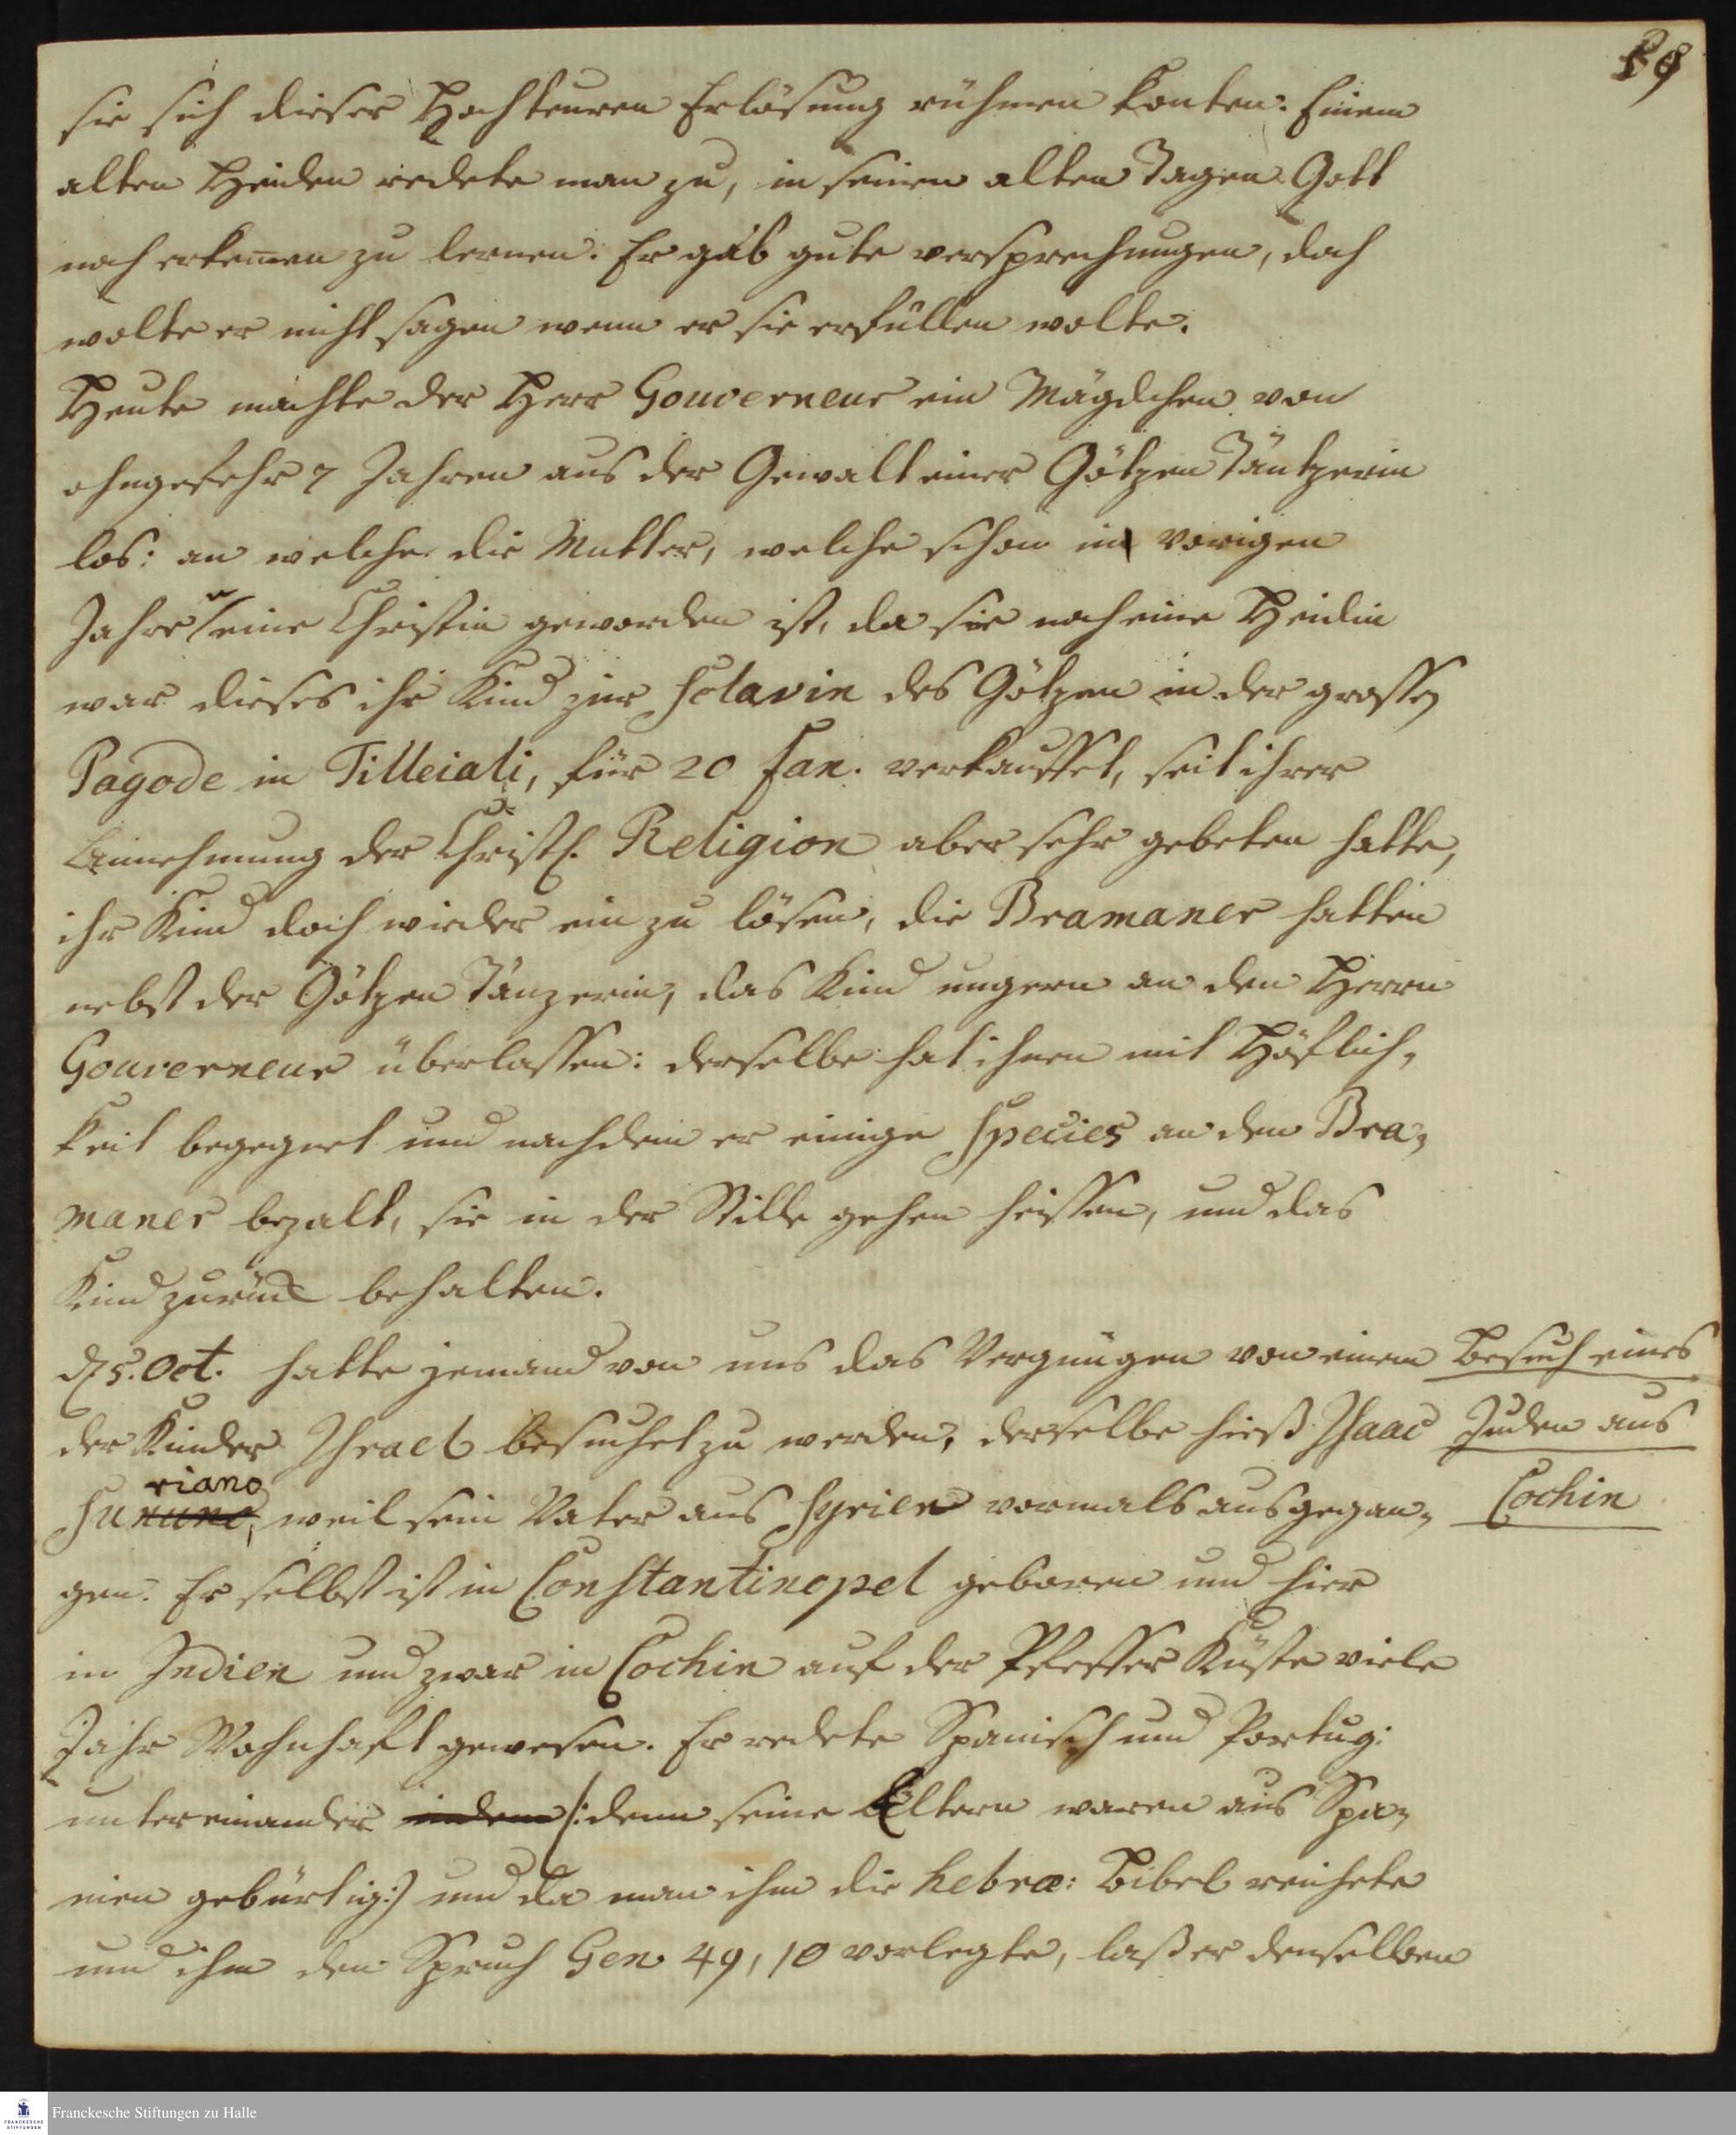 39
sie sich dieser Hochteuren Erlösung rühmen konten. Einem
alten Heiden redete man zu, in seinen alten Tagen Gott
noch erkennen zu lernen. Er gab gute versprechungen, doch
wolte er nicht sagen wenn er sie erfüllen wolte.
Heute machte der Herr Gouverneur ein Mägdchen von
ohngefehr 7 Jahren aus der Gewalt einer Götzen Täntzerin
los: an welche die Mutter, welche schon im vorigen
Jahre eine Christin geworden ist, da sie noch eine Heidin
war dieses ihr Kind zur Sclavin des Götzen in der grossen
Pagode in Tilleiali, für 20 fan. verkauffet, seit ihrer
Annehmung der Christl. Religion aber sehr gebeten hatte,
ihr Kind doch wieder ein zu lösen, die Bramaner hatten
nebst der Götzen Tänzerin, das Kind ungern an den Herrn
Gouverneur überlassen: derselbe hat ihnen mit Höflich-
keit begegnet und nachdem er einige Species an den Bra-
maner bezalt, sie in der Stille gehen heissen, und das
Kind zurück behalten.
d. 5. Oct. hatte jemand von uns das Vergnügen von einem
Besuch eines
der Kinder Israel besuchet zu werden, derselbe hieß Isaac
Juden aus
Suriano, weil sein Vater aus Syrien vormals ausgegan-
Cochin
gen. Er selbst ist in Constantinopel geboren und hier
in Indien und zwar in Cochin auf der Pfeffer Küste viele
Jahr Wohnhaft gewesen. Er redete Spanisch und Portug:
untereinander indem (: denn seine Eltern waren aus Spa-
nien gebürtig :) und da man ihm die hebræ: Bibel reichete
und ihm den Spruch Gen. 49, 10 vorlegte, laß er denselben
Franckesche Stiftungen zu Halle